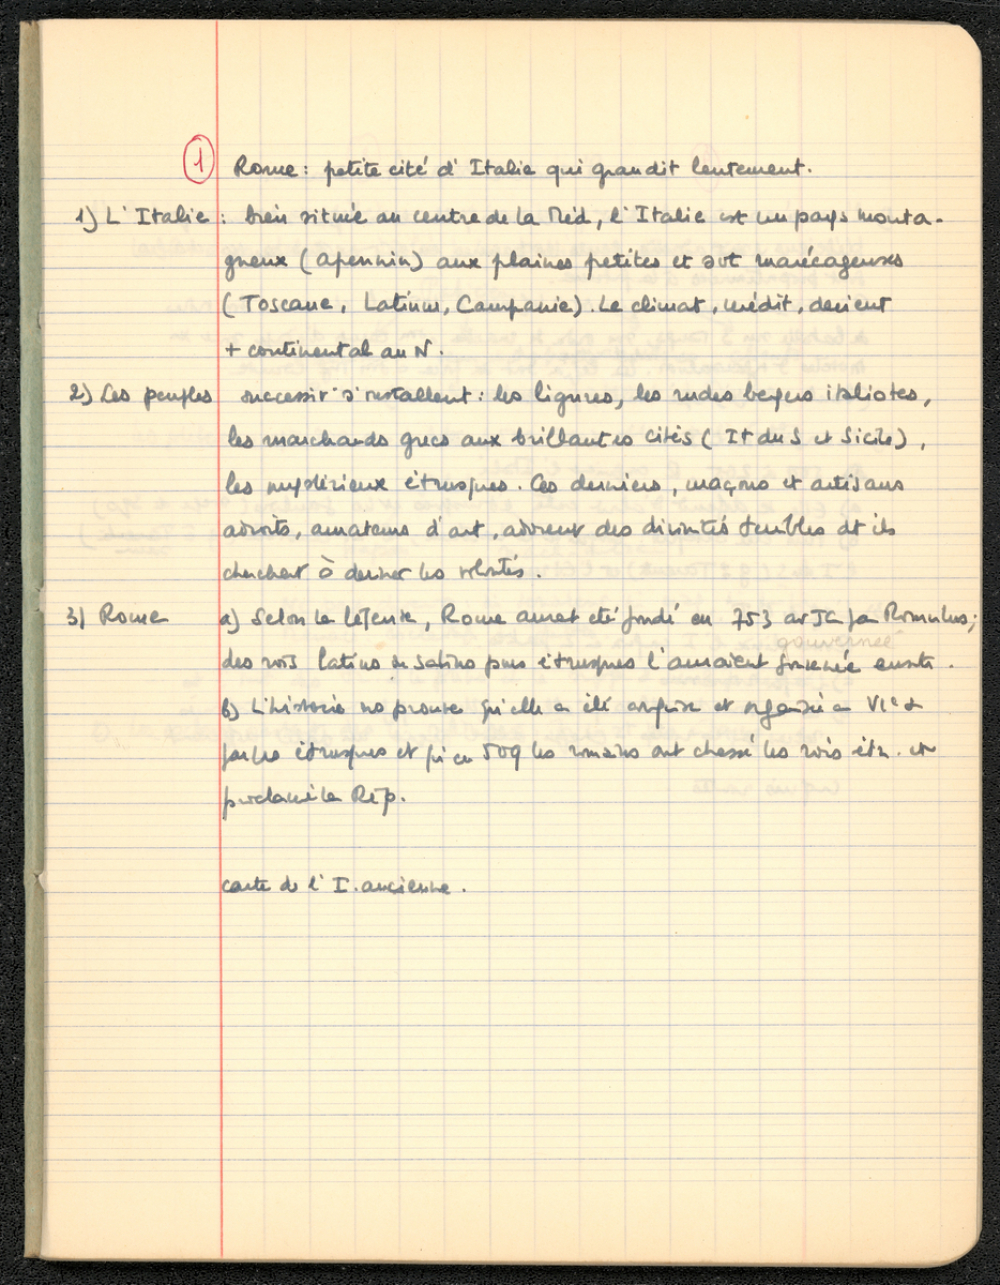 1 Rome : petite cité d'Italie qui grandit lentement.
1) L'Italie : bien située au centre de la Méd, l'Italie est un pays monta-
gneux (Apennin) aux plaines petites et svt marécageuses
(Toscane, Latium, Campanie). Le climat, médit, devient
+ continental au N.
2) Les peuples successivt s'installent : les ligures, les rudes bergers italiotes,
les marchands grecs aux brillantes cités (It du S et Sicile),
les mystérieux étrusques. Ces derniers, maçons et artisans
adroits, amateurs d'art, adorent des divinités terribles dt ils
cherchent à deviner les volontés.
3) Rome a) Selon la légende, Rome aurait été fondé en 753 av JC par Romulus ;
gouvernée
des rois latins ou sabins puis étrusques l'auraient ensuite.
b) L'histoire ns prouve qu'elle a été conquise et organisée au VIe s
par les étrusques et qu'en 509 les romains ont chassé les rois étr. et
proclamé la Rép.
carte de l'I. ancienne.